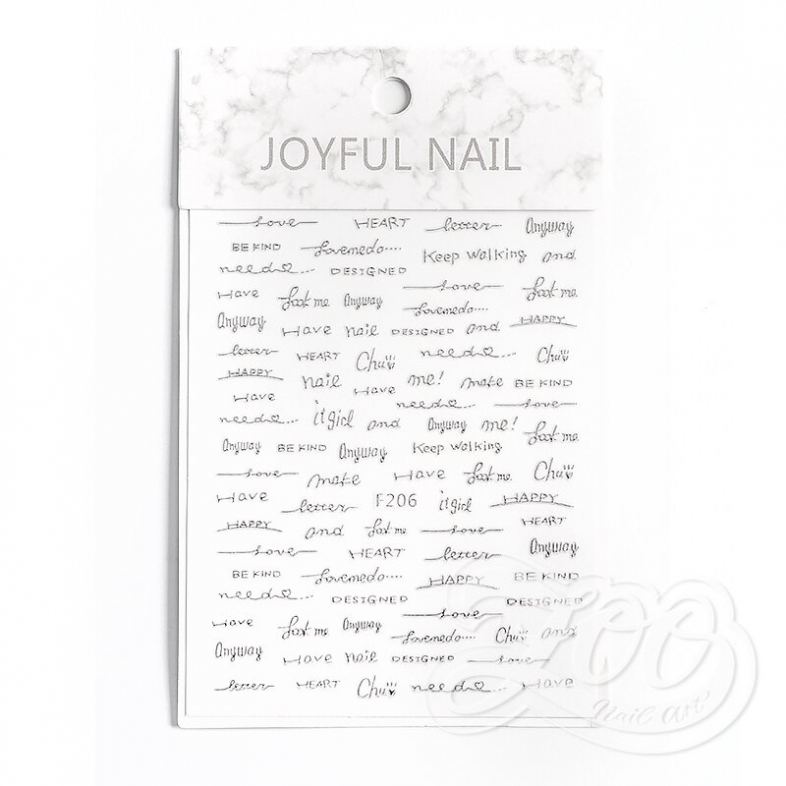 JOYFUL NAIL
love HEART letter Anyway
BE KIND lovemedo.... Keep walking and
need... DESIGNED love
Have look me Anyway lovemedo.... look me
Anyway Have nail DESIGNED and HAPPY
letter HEART Chu need... Chu
HAPPY nail Have me! make BE KIND
Have need... love
need... itgirl and Anyway me! look me
Anyway BE KIND Anyway Keep walking
love make Have look me Chu
Have letter F206 itgirl HAPPY
HAPPY and look me love HEART
love HEART letter Anyway
BE KIND lovemedo.... HAPPY BE KIND
need... DESIGNED DESIGNED
Have look me Anyway love
lovemedo.... Chu and
Anyway Have nail DESIGNED love
letter HEART Chu need... Have
ZOO
Nail Art